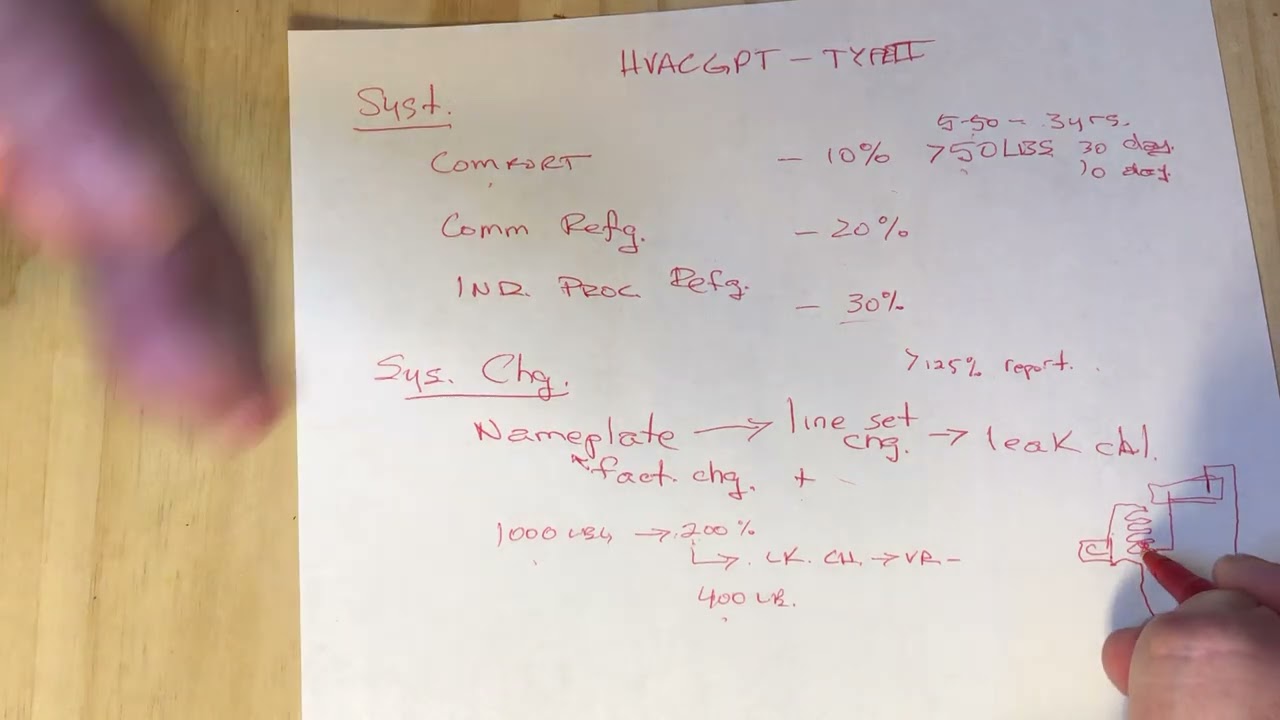 HVACGPT - TYPE II
Syst.
5-50 - 3yrs.
COMFORT - 10% >50LBS 30 day.
10 day.
Comm Refg. - 20%
IND. PROC. Refg. - 30%
>125% report.
Sys. Chg.
Nameplate → line set chg. → leak chl.
fact. chg. +
1000 LBS → 200%
↳ LK. CH. → VR -
400 LB.